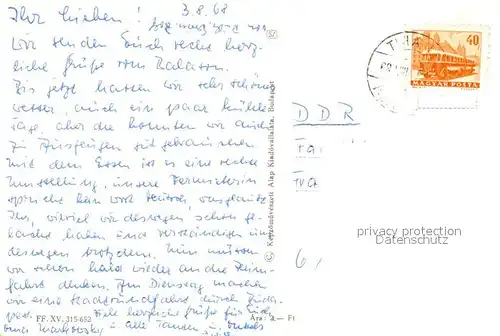 Ihr Lieben! 3.8.68
wir senden Euch recht herz-
liche Grüße vom Balaton.
Bis jetzt hatten wir sehr schönes
Wetter, auch ein paar kühle
Tage, aber die konnten wir auch
zu Ausflügen gut gebrauchen.
Mit dem Essen ist es eine rechte
Umstellung, unsere Vermieterin
spricht kein Wort deutsch,
wieviel wir deswegen schon ge-
lacht haben und verständigen uns
deswegen trotzdem. Nun müssen
wir schon bald wieder an die Heim-
fahrt denken. Am Dienstag machen
wir eine Stadtrundfahrt durch Buda-
pest. Viele herzliche Grüße für
alle Tanten u. Onkels
FF. XV. 315/652
Ára: 2.— Ft
Képzőművészeti Alap Kiadóvállalata, Budapest
TIHA
40
MAGYAR POSTA
DDR
privacy protection
Datenschutz